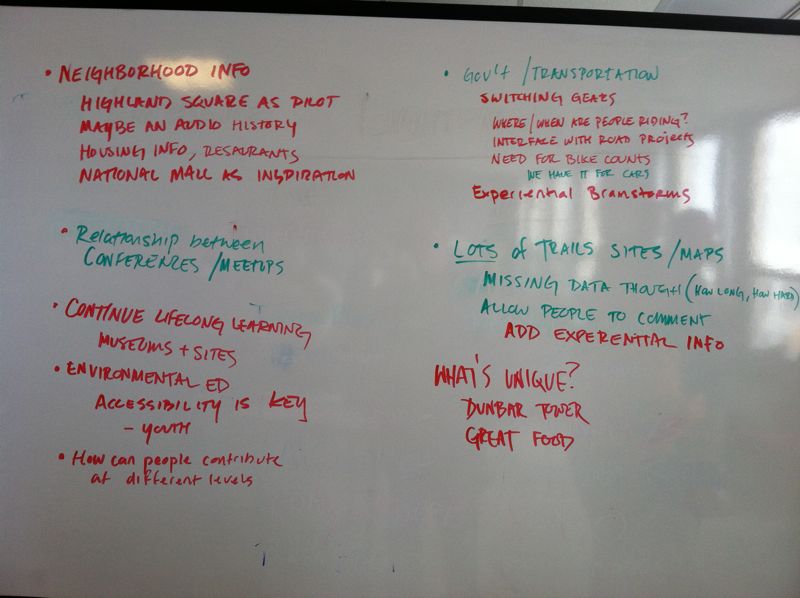 • NEIGHBORHOOD INFO
HIGHLAND SQUARE AS PILOT
MAYBE AN AUDIO HISTORY
HOUSING INFO, RESAURANTS
NATIONAL MALL AS INSPIRATION
• Relationship between
CONFERENCES / MEETUPS
• CONTINUE LIFELONG LEARNING
MUSEUMS + SITES
• ENVIRONMENTAL ED
ACCESSIBILITY IS KEY
- YOUTH
• How can people contribute
at different levels
• GOV'T / TRANSPORTATION
SWITCHING GEARS
WHERE / WHEN ARE PEOPLE RIDING?
INTERFACE WITH ROAD PROJECTS
NEED FOR BIKE COUNTS
WE HAVE IT FOR CARS
Experiential Branstorms
• LOTS of TRAILS SITES / MAPS
MISSING DATA THOUGH (HOW LONG, HOW HARD)
ALLOW PEOPLE TO COMMENT
ADD EXPERENTIAL INFO
WHAT'S UNIQUE?
DUNBAR TOWER
GREAT FOOD